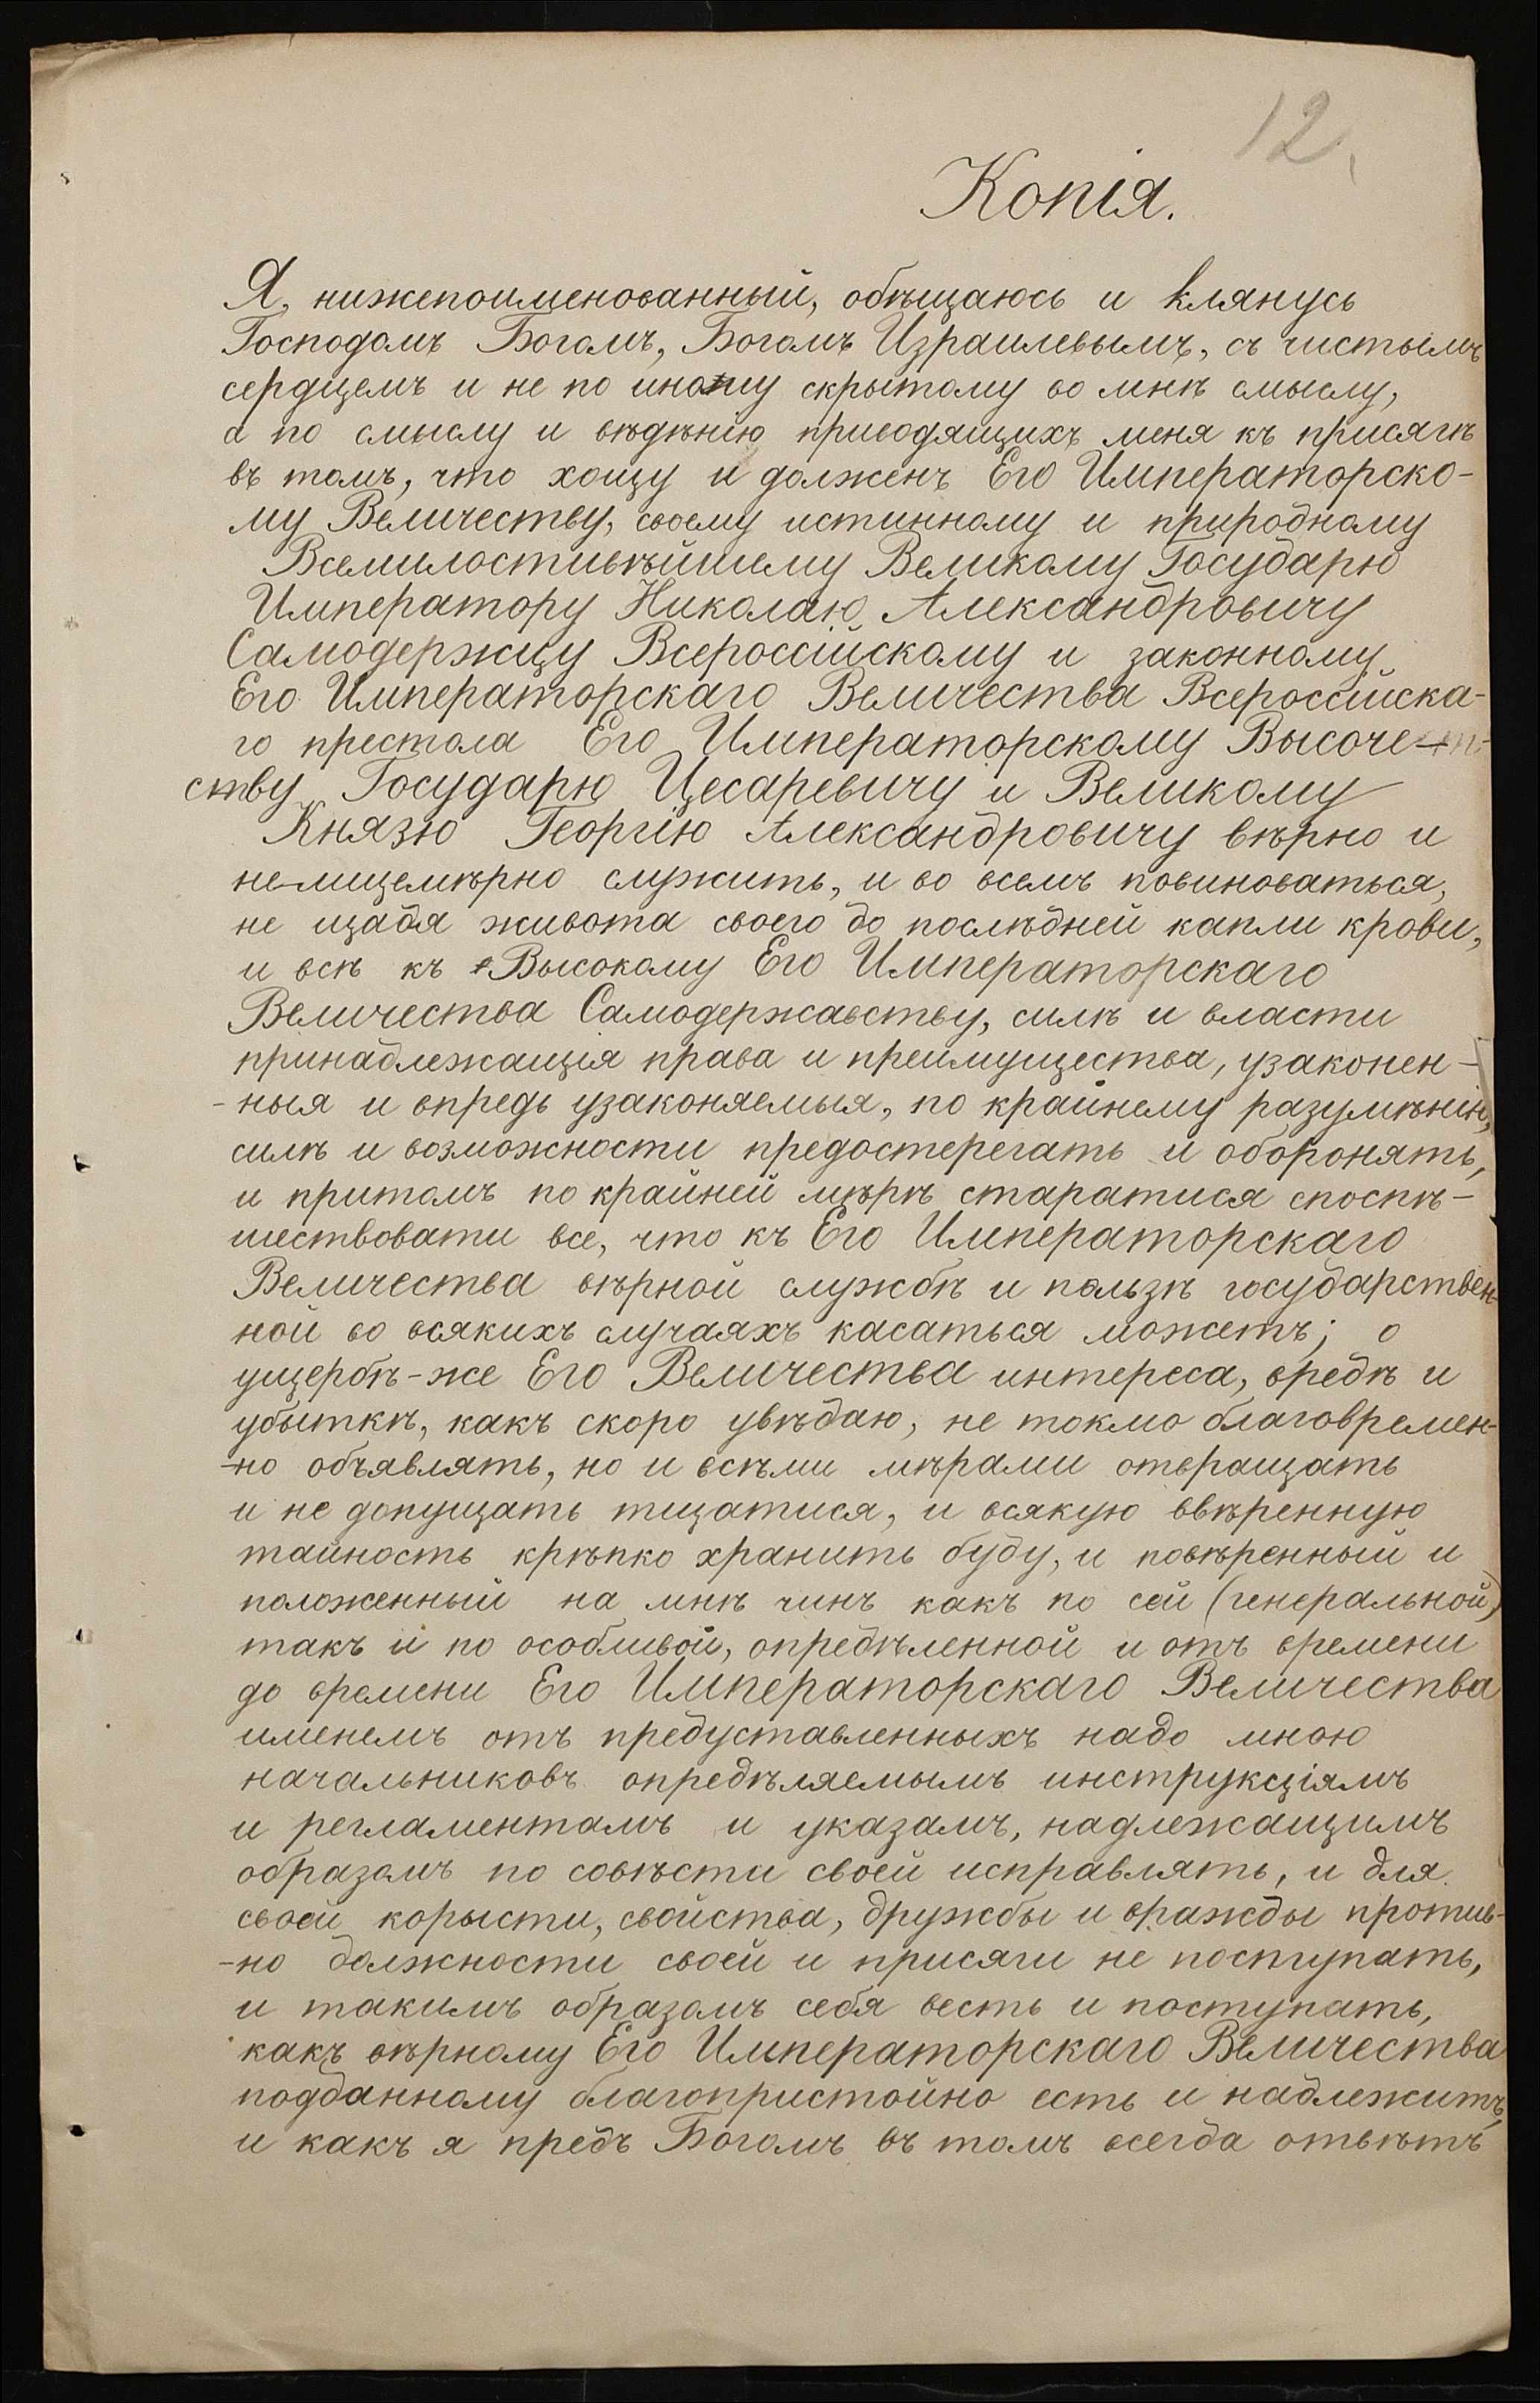 12.
Копія.
Я, нижепоименованный, обѣщаюсь и клянусь
Господомъ Богомъ, Богомъ Израилевымъ, съ чистымъ
сердцемъ и не по иному скрытому во мнѣ смыслу,
а по смыслу и вѣдѣнію приводящихъ меня къ присягѣ
въ томъ, что хощу и долженъ Его Императорско-
му Величеству, своему истинному и природному
Всемилостивѣйшему Великому Государю
Императору Николаю Александровичу
Самодержцу Всероссійскому и законному
Его Императорскаго Величества Всероссійска-
го престола Его Императорскому Высоче-
ству Государю Цесаревичу и Великому
Князю Георгію Александровичу вѣрно и
нелицемѣрно служить, и во всемъ повиноваться,
не щадя живота своего до послѣдней капли крови,
и всѣ къ Высокому Его Императорскаго
Величества Самодержавству, силѣ и власти
принадлежащія права и преимущества, узаконен-
-ныя и впредь узаконяемыя, по крайнему разумѣнію,
силѣ и возможности предостерегать и оборонять,
и притомъ по крайней мѣрѣ старатися споспѣ-
шествовати все, что къ Его Императорскаго
Величества вѣрной службѣ и пользѣ государствен-
ной во всякихъ случаяхъ касаться можетъ; о
ущербѣ-же Его Величества интереса, вредѣ и
убыткѣ, какъ скоро увѣдаю, не токмо благовремен-
-но объявлять, но и всѣми мѣрами отвращать
и не допущать тщатися, и всякую ввѣренную
тайность крѣпко хранить буду, и повѣренный и
положенный на мнѣ чинъ какъ по сей (генеральной)
такъ и по особливой, опредѣленной и отъ времени
до времени Его Императорскаго Величества
именемъ отъ предуставленныхъ надо мною
начальниковъ опредѣляемымъ инструкціямъ
и регламентамъ и указамъ, надлежащимъ
образомъ по совѣсти своей исправлять, и для
своей корысти, свойства, дружбы и вражды против-
-но должности своей и присяги не поступать,
и такимъ образомъ себя весть и поступать,
какъ вѣрному Его Императорскаго Величества
подданному благопристойно есть и надлежитъ,
и какъ я предъ Богомъ въ томъ всегда отвѣтъ